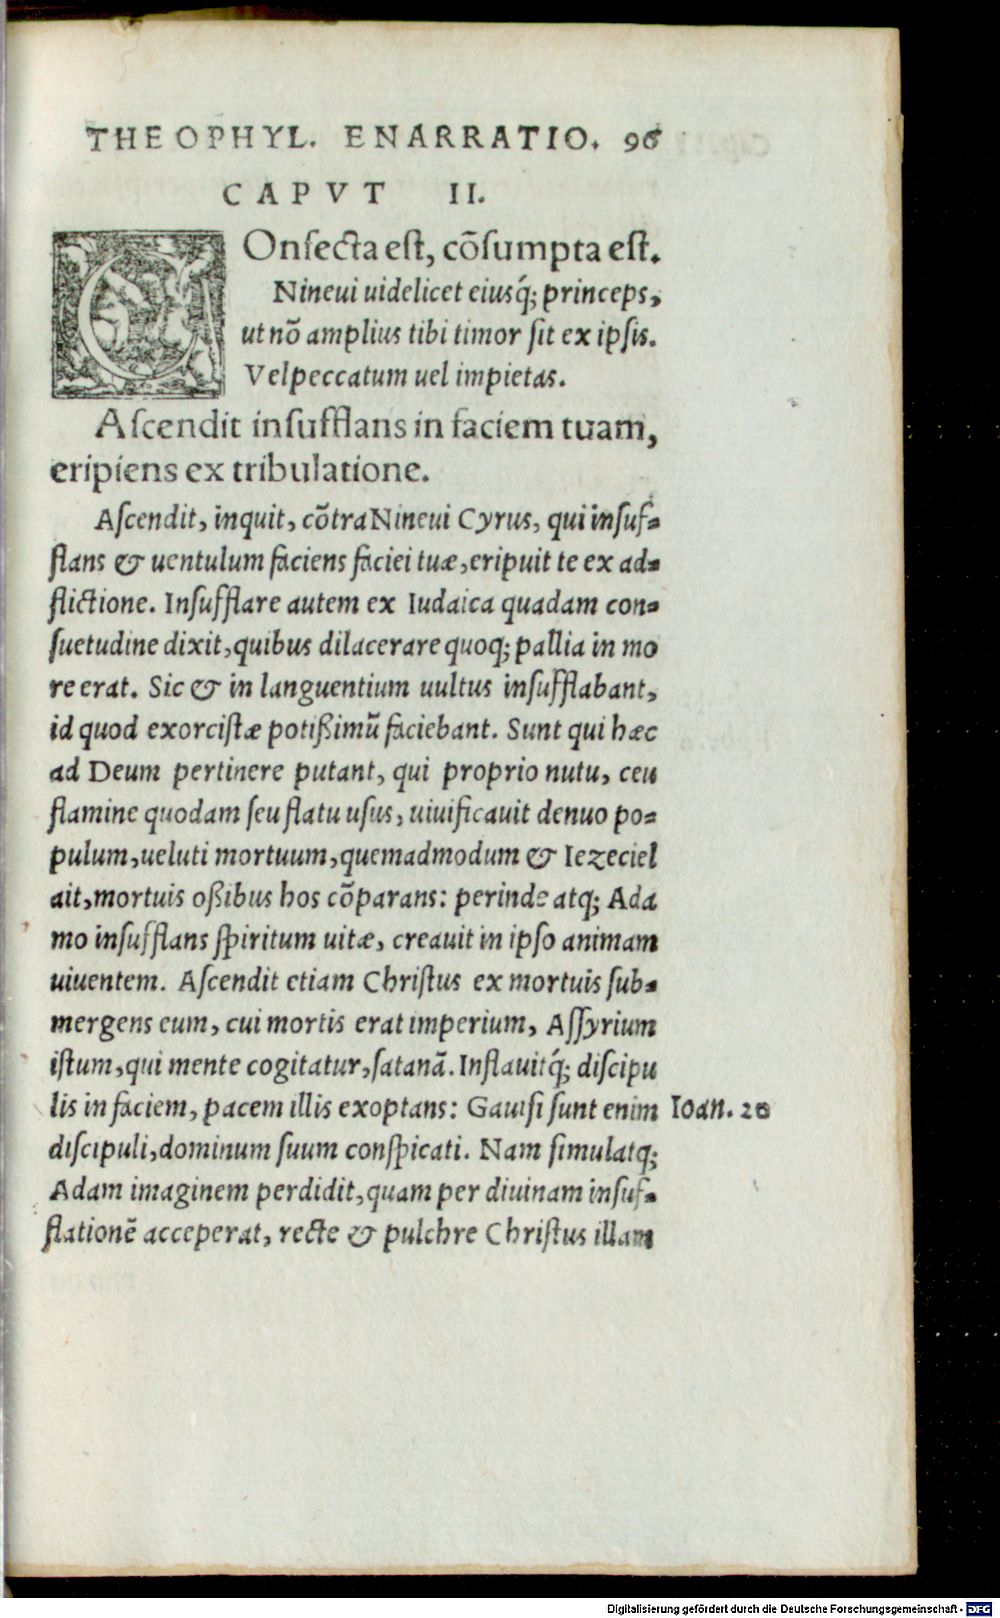 THEOPHYL. ENARRATIO. 96
CAPVT II.
COnſecta eſt, cōſumpta eſt.
Nineui uidelicet eiusq́; princeps,
ut nō amplius tibi timor ſit ex ipſis.
Vel peccatum uel impietas.
Aſcendit inſufflans in faciem tuam,
eripiens ex tribulatione.
Aſcendit, inquit, cōtra Nineui Cyrus, qui inſuf-
flans & uentulum faciens faciei tuæ, eripuit te ex ad-
flictione. Inſufflare autem ex Iudaica quadam con-
ſuetudine dixit, quibus dilacerare quoq; pallia in mo
re erat. Sic & in languentium uultus inſufflabant,
id quod exorciſtæ potißimū faciebant. Sunt qui hæc
ad Deum pertinere putant, qui proprio nutu, ceu
flamine quodam ſeu flatu uſus, uiuificauit denuo po-
pulum, ueluti mortuum, quemadmodum & Iezeciel
ait, mortuis oßibus hos cōparans: perinde atq; Ada
mo inſufflans ſpiritum uitæ, creauit in ipſo animam
uiuentem. Aſcendit etiam Chriſtus ex mortuis ſub-
mergens eum, cui mortis erat imperium, Aſſyrium
iſtum, qui mente cogitatur, ſatanā. Inflauitq́; diſcipu
lis in faciem, pacem illis exoptans: Gauiſi ſunt enim Ioan. 20
diſcipuli, dominum ſuum conſpicati. Nam ſimulatq;
Adam imaginem perdidit, quam per diuinam inſuf-
flationē acceperat, recte & pulchre Chriſtus illam
Digitalisierung gefördert durch die Deutsche Forschungsgemeinschaft - DFG